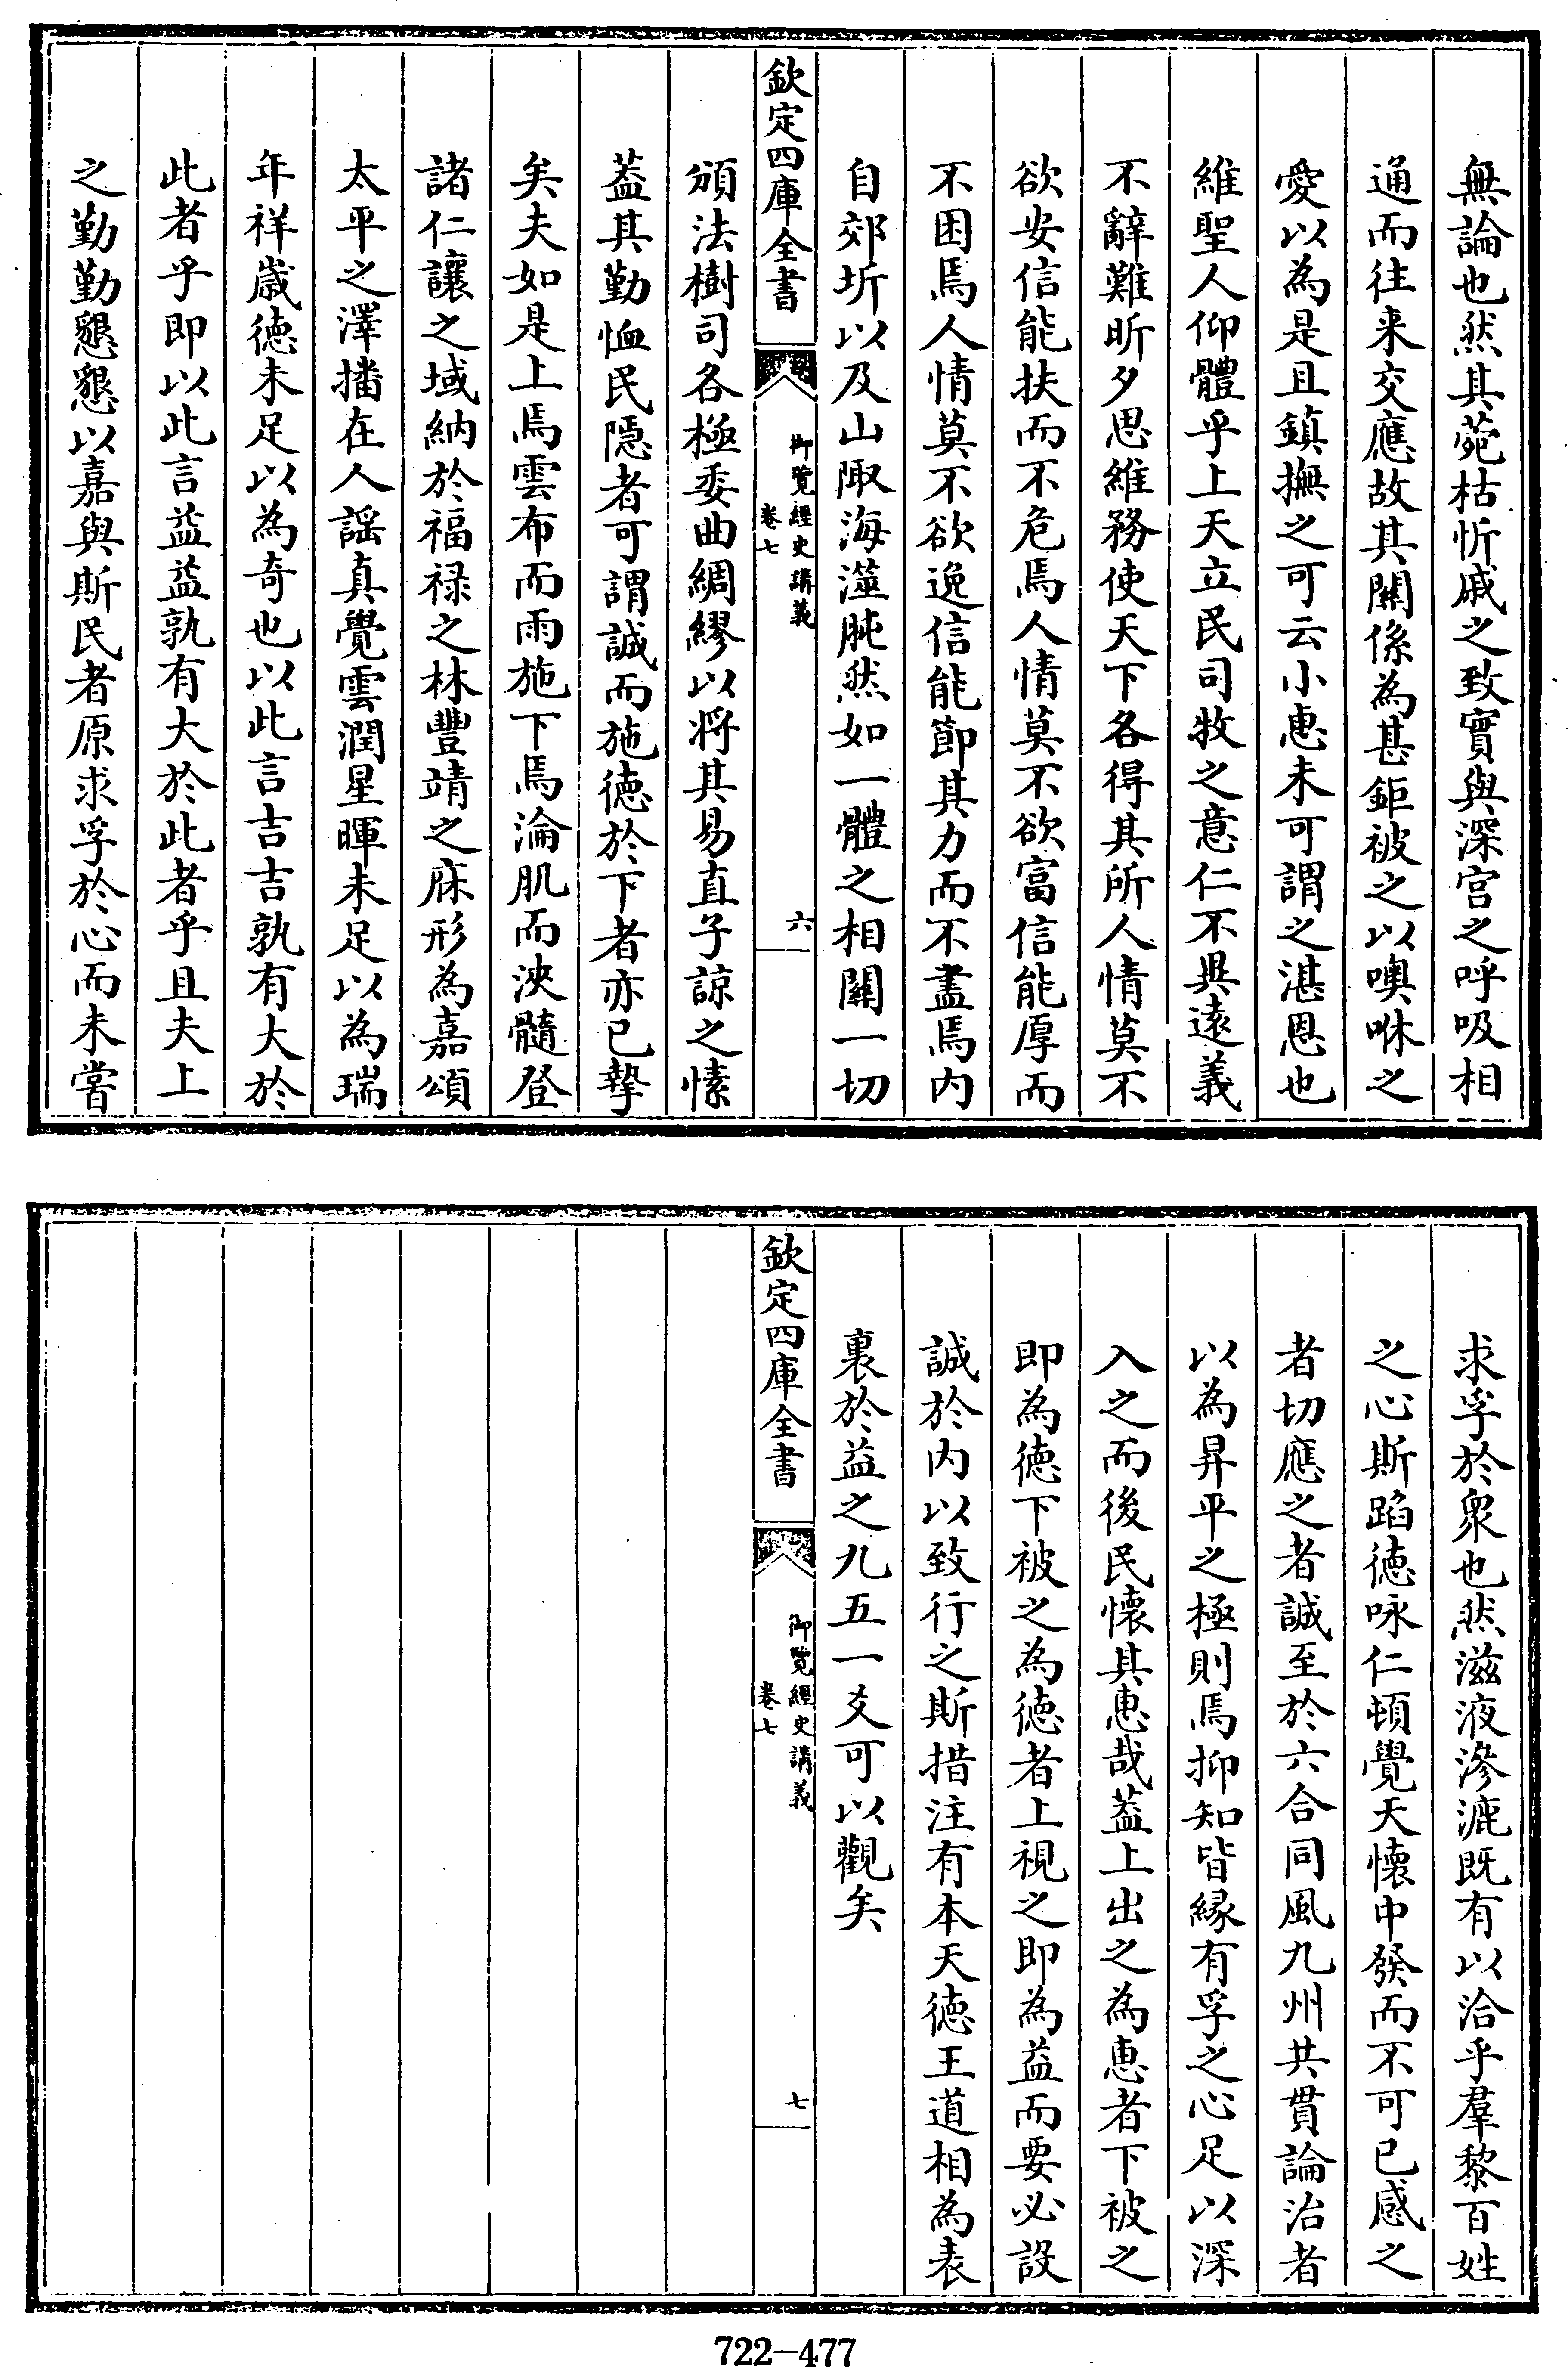 無論也然其菀枯忻戚之致實與深宫之呼吸相
通而往来交應故其關係為甚鉅被之以噢咻之
愛以為是且鎮撫之可云小惠未可謂之湛恩也
維聖人仰體乎上天立民司牧之意仁不異遠義
不辭難昕夕思維務使天下各得其所人情莫不
欲安信能扶而不危焉人情莫不欲富信能厚而
不困焉人情莫不欲逸信能節其力而不盡焉内
自郊圻以及山陬海澨肫然如一體之相關一切
欽定四庫全書
御覽經史講義
卷七
六
頒法樹司各極委曲綢繆以将其易直子諒之愫
葢其勤恤民隠者可謂誠而施徳於下者亦已摯
矣夫如是上焉雲布而雨施下焉淪肌而浹髓登
諸仁讓之域納於福禄之林豐靖之庥形為嘉頌
太平之澤播在人謡真覺雲潤星暉未足以為瑞
年祥嵗徳未足以為奇也以此言吉吉孰有大於
此者乎即以此言益益孰有大於此者乎且夫上
之勤勤懇懇以嘉與斯民者原求孚於心而未嘗
求孚於衆也然滋液滲漉既有以洽乎羣黎百姓
之心斯蹈徳咏仁頓覺天懐中發而不可已感之
者切應之者誠至於六合同風九州共貫論治者
以為昇平之極則焉抑知皆縁有孚之心足以深
入之而後民懐其惠哉葢上出之為惠者下被之
即為徳下被之為徳者上視之即為益而要必設
誠於内以致行之斯措注有本天徳王道相為表
裏於益之九五一爻可以觀矣
欽定四庫全書
御覽經史講義
卷七
七
722-477